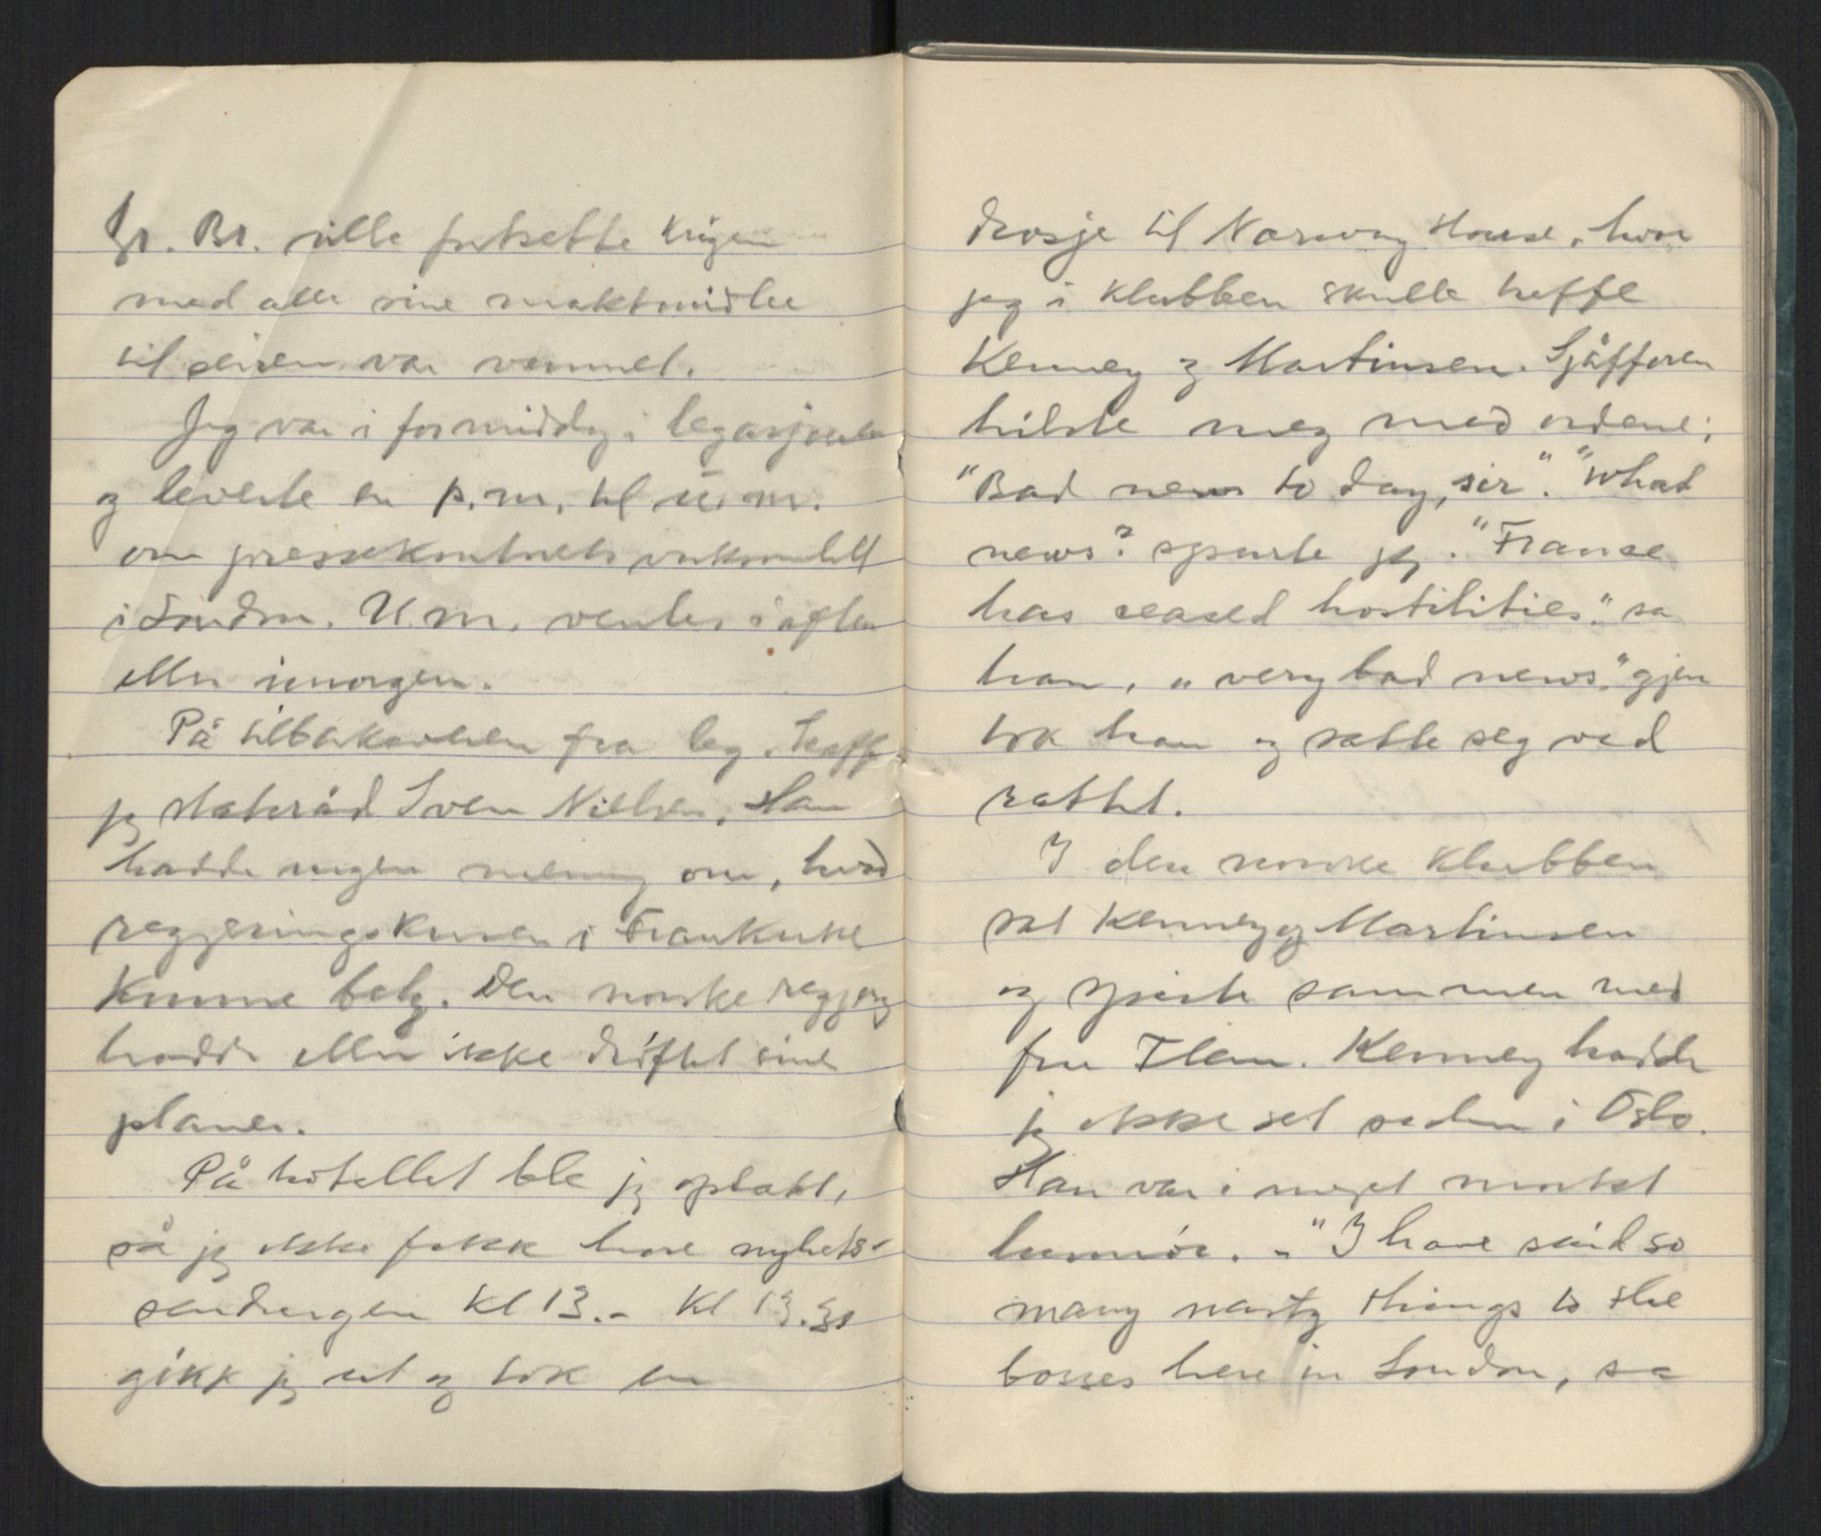 Gr. Br. ville fortsette krigen
med alle sine maktmidler
til seiren var vunnet.
Jeg var i formiddag i legasjonen
og leverte en p.m. til u.m.
om pressekontorets virksomhet
i London. U.m. ventes i aften
eller imorgen.
På tilbakeveien fra leg. traff
jeg statsråd Sven Nielsen. Han
hadde ingen mening om, hvad
regjeringskrisen i Frankrike
kunne bety. Den norske regjering
hadde eller ikke drøftet sine
planer.
På hotellet ble jeg optatt,
så jeg ikke fikk høre nyhets-
sendingen kl 13.- Kl 13.30
gikk jeg ut og tok en
drosje til Norway House, hvor
jeg i klubben skulle treffe
Kenney og Martinsen. Sjåfføren
hilste meg med ordene:
"Bad news to day, sir". "What
news? spurte jeg. "France
has ceased hostilities." sa
han, "very bad news," gjen
tok han og satte seg ved
rattet.
I den norske klubben
sat Kenney og Martinsen
og spiste sammen med
fru Tlem. Kenney hadde
jeg ikke set siden i Oslo.
Han var i meget mørkt
humør. - "I have said so
many nasty things to the
bosses here in London, sa